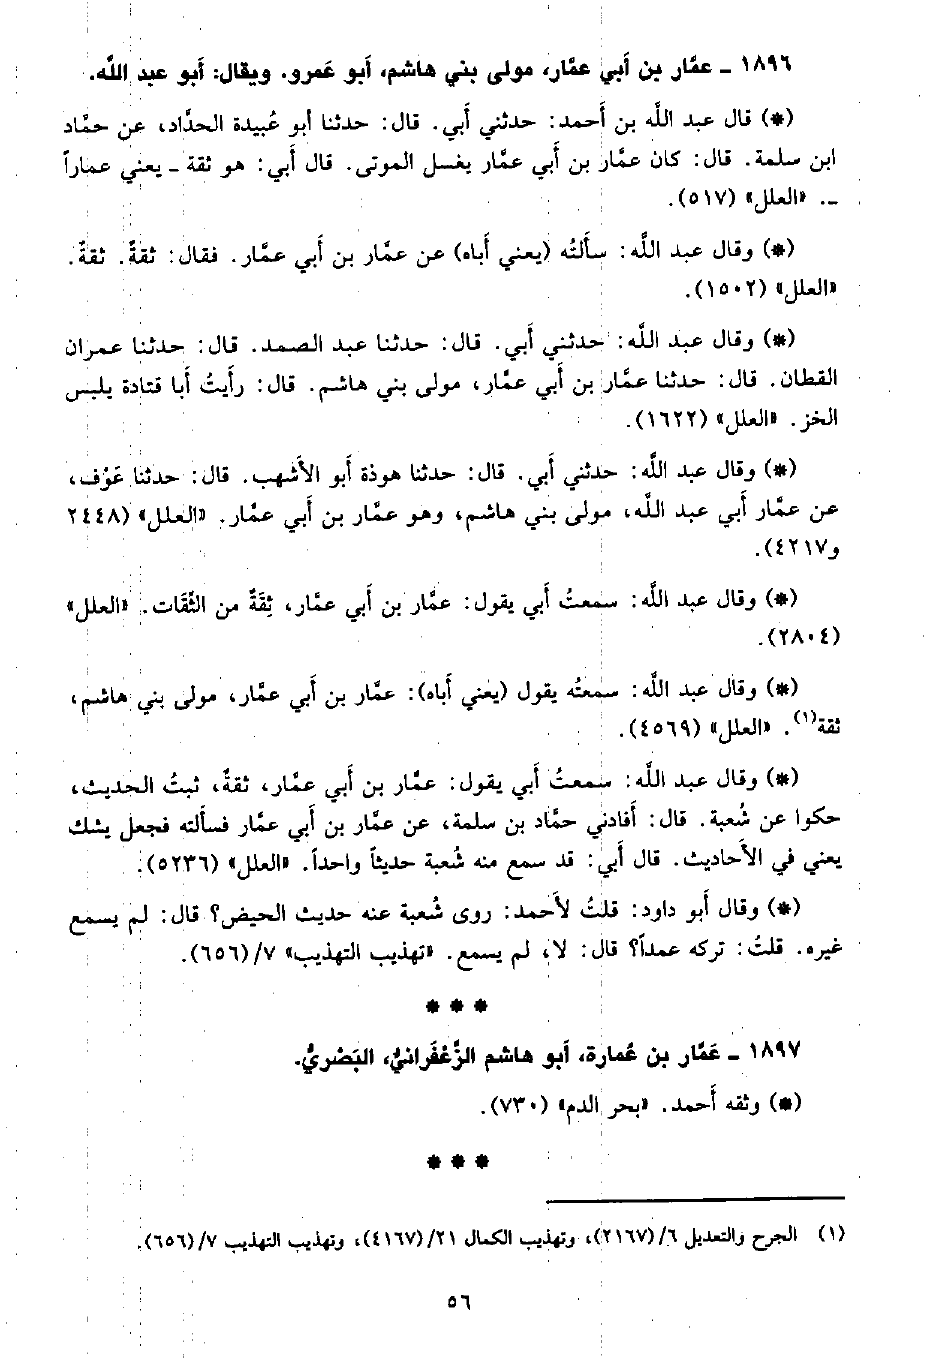 ١٨٩٦ ـ عمَّار بن أَبي عمَّار، مولى بني هاشم، أَبو عَمرو. ويقال: أَبو عبد اللَّه.
(*) قال عبد اللَّه بن أَحمد: حدثني أَبي. قال: حدثنا أبو عُبيدة الحدَّاد، عن حمَّاد
ابن سلمة. قال: كان عمَّار بن أَبي عمَّار يغسل الموتى. قال أَبي: هو ثقة ـ يعني عماراً
ـ. «العلل» (٥١٧).
(*) وقال عبد اللَّه: سأَلتُه (يعني أَباه) عن عمَّار بن أَبي عمَّار. فقال: ثقةٌ. ثقةٌ.
«العلل» (١٥٠٢).
(*) وقال عبد اللَّه: حدثني أَبي. قال: حدثنا عبد الصمد. قال: حدثنا عمران
القطان. قال: حدثنا عمَّار بن أَبي عمَّار، مولى بني هاشم. قال: رأَيتُ أَبا قتادة يلبس
الخز. «العلل» (١٦٢٢).
(*) وقال عبد اللَّه: حدثني أَبي. قال: حدثنا هوذة أَبو الأَشهب. قال: حدثنا عَوْف،
عن عمَّار أَبي عبد اللَّه، مولى بني هاشم، وهو عمَّار بن أَبي عمَّار. «العلل» (٢٤٤٨
و٤٢١٧).
(*) وقال عبد اللَّه: سمعتُ أَبي يقول: عمَّار بن أَبي عمَّار، ثِقَةٌ من الثِّقَات. «العلل»
(٢٨٠٤).
(*) وقال عبد اللَّه: سمعتُه يقول (يعني أَباه): عمَّار بن أَبي عمَّار، مولى بني هاشم،
ثقة(١). «العلل» (٤٥٦٩).
(*) وقال عبد اللَّه: سمعتُ أَبي يقول: عمَّار بن أَبي عمَّار، ثقةٌ، ثبتُ الحديث،
حكوا عن شُعبة. قال: أَفادني حمَّاد بن سلمة، عن عمَّار بن أَبي عمَّار فسأَلته فجعل يشك
يعني في الأَحاديث. قال أَبي: قد سمع منه شُعبة حديثاً واحداً. «العلل» (٥٢٣٦).
(*) وقال أَبو داود: قلتُ لأَحمد: روى شُعبة عنه حديث الحيض؟ قال: لم يسمع
غيره. قلتُ: تركه عمداً؟ قال: لا، لم يسمع. «تهذيب التهذيب» ٧/(٦٥٦).
* * *
١٨٩٧ ـ عَمَّار بن عُمارة، أَبو هاشم الزَّعْفَرانيُّ، البَصْريُّ.
(*) وثقه أَحمد. «بحر الدم» (٧٣٠).
* * *
(١) الجرح والتعديل ٦/(٢١٦٧)، وتهذيب الكمال ٢١/(٤١٦٧)، وتهذيب التهذيب ٧/(٦٥٦).
٥٦